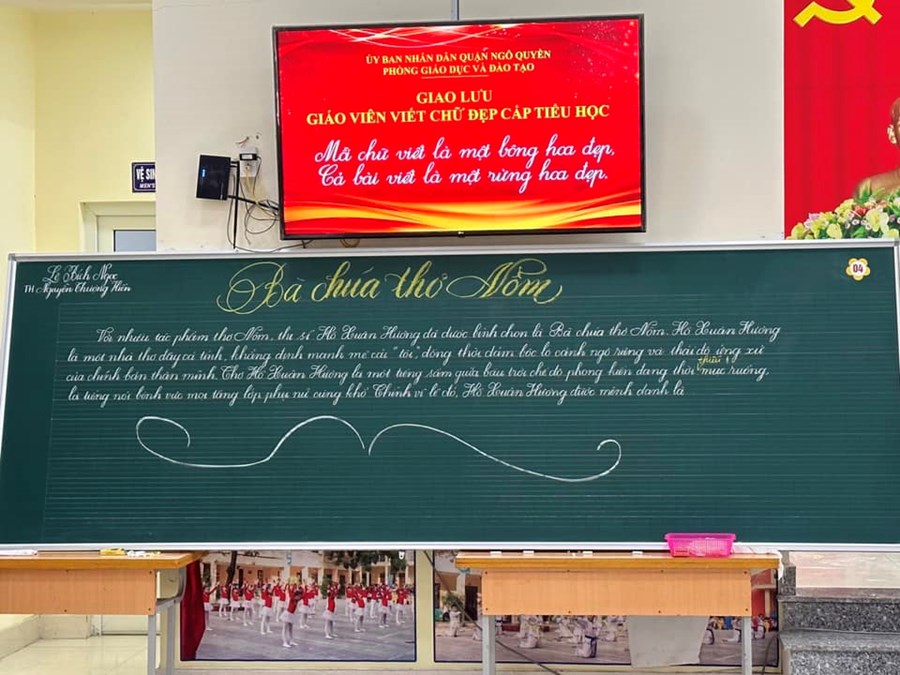 ỦY BAN NHÂN DÂN QUẬN NGÔ QUYỀN
PHÒNG GIÁO DỤC VÀ ĐÀO TẠO
GIAO LƯU
GIÁO VIÊN VIẾT CHỮ ĐẸP CẤP TIỂU HỌC
Mỗi chữ viết là một bông hoa đẹp,
Cả bài viết là một rừng hoa đẹp.
VỆ SIN
MEN'S
Lê Bích Ngọc
TH Nguyễn Thượng Hiền
04
Bà chúa thơ Nôm
Với nhiều tác phẩm thơ Nôm, thi sĩ Hồ Xuân Hương đã được bình chọn là Bà chúa thơ Nôm. Hồ Xuân Hương
là một nhà thơ đầy cá tính, khẳng định mạnh mẽ cái "tôi", đồng thời dám bộc lộ cảnh ngộ riêng và thái độ ứng xử
của chính bản thân mình. Thơ Hồ Xuân Hương là một tiếng sấm giữa bầu trời chế độ phong kiến đang thời mục ruỗng,
là tiếng nói bênh vực mọi tầng lớp phụ nữ cùng khổ. Chính vì lẽ đó, Hồ Xuân Hương được mệnh danh là